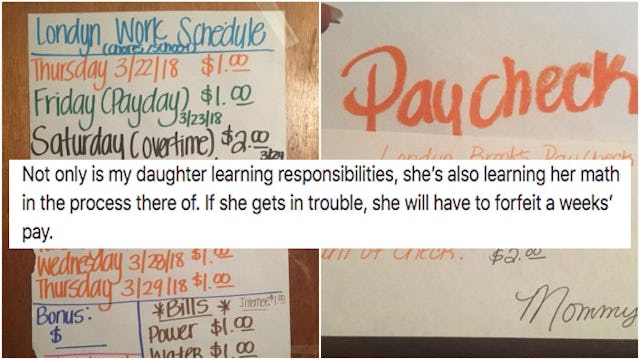 Londyn Work Schedule
(chores/school)
Thursday 3/22/18 $1.00
Friday (Payday) $1.00
3/23/18
Saturday (overtime) $2.00
3/24
Not only is my daughter learning responsibilities, she's also learning her math
in the process there of. If she gets in trouble, she will have to forfeit a weeks'
pay.
Wednesday 3/28/18 $1.00
Thursday 3/29/18 $1.00
Bonus:
$
*Bills*
Internet $1.00
Power $1.00
Water $1.00
Paycheck
Londyn Brooks Paycheck
of Check. $2.00
Mommy